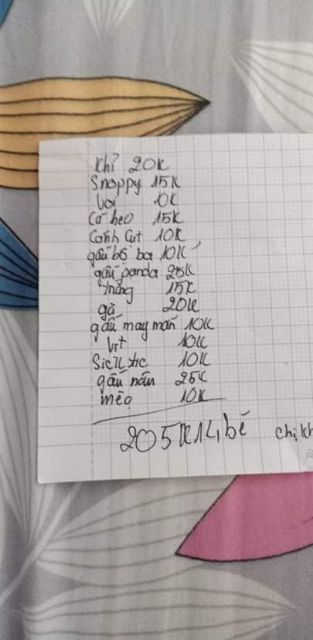 khỉ 20K
Snoppy 15K
Voi 10K
Cá heo 15K
Cánh Cụt 10K
gấu bố ba 10K
gấu panda 25K
trăng 15K
gà 20K
gấu may mắn 10K
Vịt 10K
10K
gấu nâu 25K
mèo 10K
205K 14 bé
chị